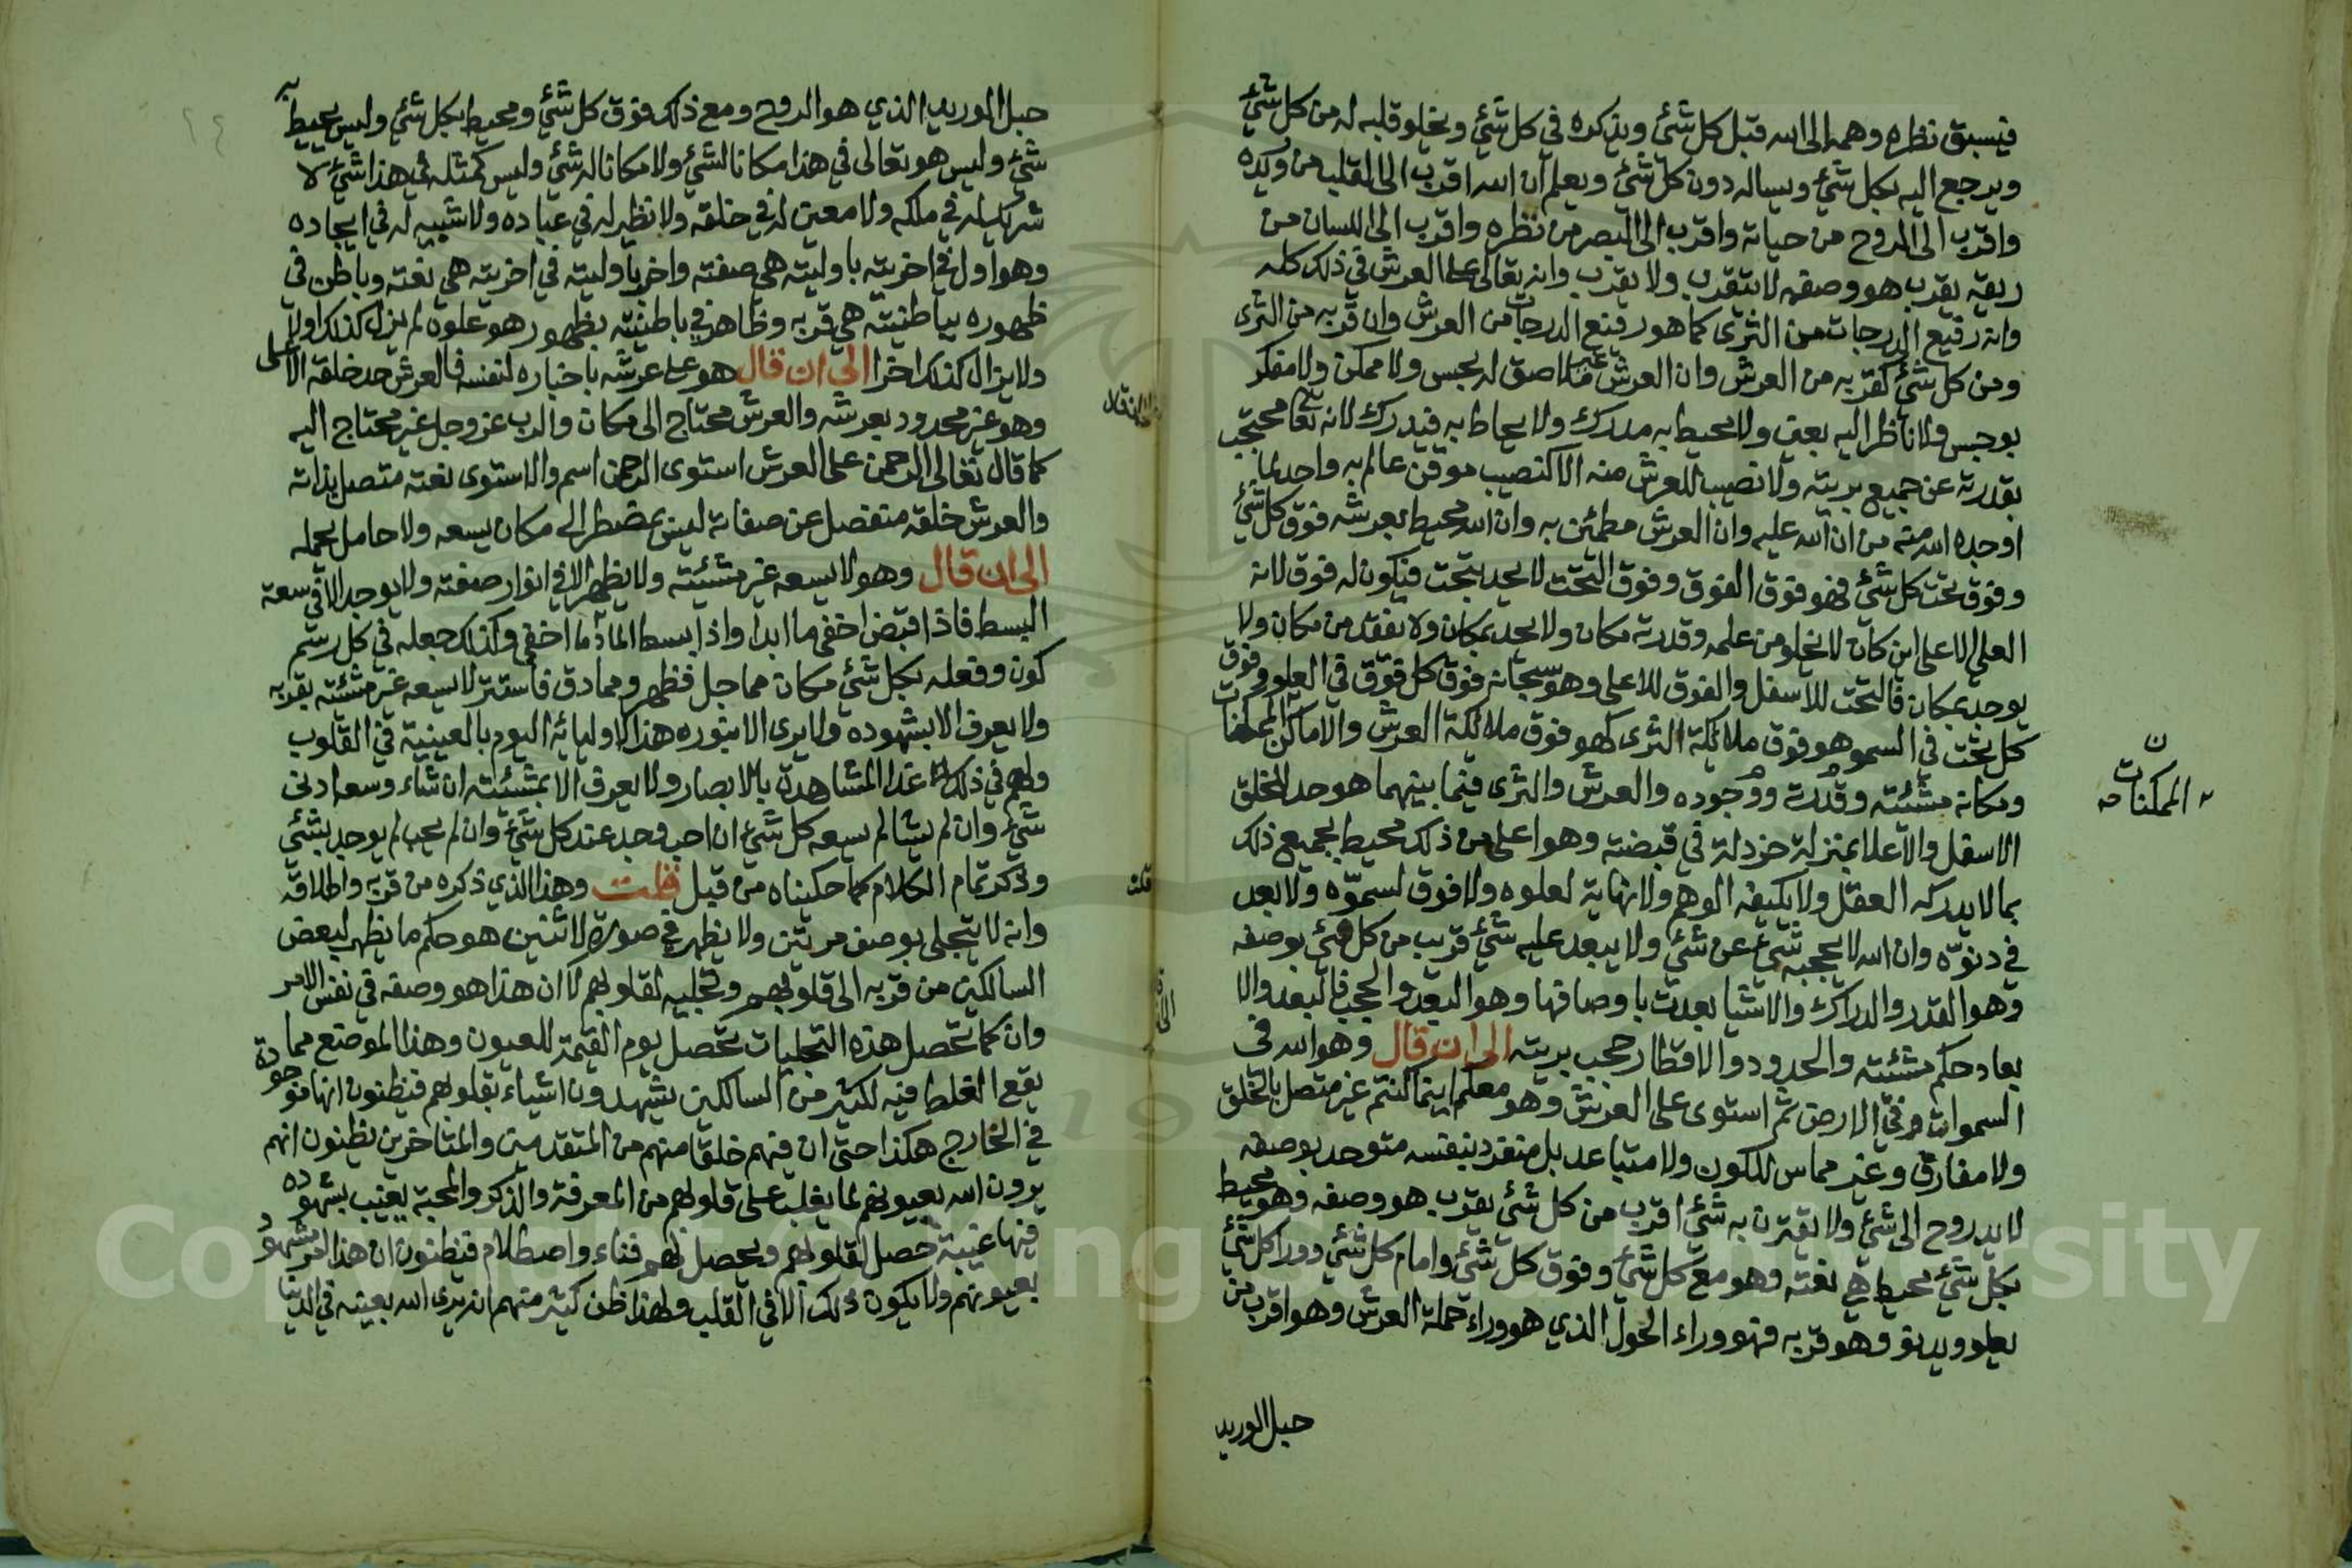 فيسبق نظره وهمه الى الله قبل كل شئ ويذكره في كل شئ ويخلو قلبه له من كل شئ
ويرجع اليه بكل شئ ويساله دون كل شئ ويعلم ان الله اقرب الى القلب من وريده
واقرب الى الروح من حياته واقرب الى البصر من نظره واقرب الى اللسان من
ريقه بقرب هو وصفه لا بتقرب ولا يقرب وانه تعالى على العرش في ذلك كله
وانه رفيع الدرجات من الثرى كما هو رفيع الدرجات من العرش وان قربه من الثرى
ومن كل شئ كقربه من العرش وان العرش غير ملاصق له بحس ولا ممكن ولا مفكر
بوجس ولا ناظر اليه بعين ولا محيط به مدرك ولا يحاط به فيدرك لانه تعا محتجب
بقدرته عن جميع بريته ولا نصيب للعرش منه الا كنصيب موقن عالم به واجد لما
اوجده الله منه من ان الله عليه وان العرش مطمئن به وان الله محيط بعرشه فوق كل شئ
وفوق تحت كل شئ فهو فوق الفوق وفوق التحت لا يحد بتحت فيكون له فوق لانه
العلي الاعلى اين كان لا يخلو من علمه وقدرته مكان ولا يحد بمكان ولا يفقد من مكان ولا
يوجد بمكان فالتحت للاسفل والفوق للاعلى وهو سبحانه فوق كل فوق في العلو وفوق
كل تحت في السمو هو فوق ملائكة الثرى كهو فوق ملائكة العرش والاماكن الممكنات
ومكانه مشئته وقدرته ووجوده والعرش والثرى فيما بينهما هو حد للخلق
الاسفل والاعلا بمنزلة خردلة في قبضته وهو اعلى من ذلك محيط بجميع ذلك
بما لا يدركه العقل ولا يكيفه الوهم ولا نهاية لعلوه ولا فوق لسموّه ولا بعد
في دنوّه وان الله لا يحجبه شئ عن شئ ولا يبعد عليه شئ قريب من كل شئ بوصفه
وهو القدر والدراك والاشيا بعدت باوصافها وهو البعد والحجب فالبعد والا
بعاد حكم مشئته والحدود والاقطار حجب بريته الى ان قال وهو الله في
السموات وفي الارض ثم استوى على العرش وهو معكم اينما كنتم غير متصل بالخلق
ولا مفارق وغير مماس للكون ولا متباعد بل منفرد بنفسه متوحد بوصفه
لا يدروح الى شئ ولا يقترن به شئ اقرب من كل شئ بقرب هو وصفه وهو محيط
بكل شئ بحيطة هي نعته وهو مع كل شئ وفوق كل شئ وامام كل شئ ووراكل شئ
بعلو ويدنو وهو قربه فهو وراء الحول الذي هو وراء حملة العرش وهو اقرب من
حبل الوريد
ن
الممكنات
حبل الوريد الذي هو الروح ومع ذلك فوق كل شئ ومحيط بكل شئ وليس يحيط به
شئ وليس هو تعالى في هذا مكانا لشئ ولا مكانا له شئ وليس كمثله في هذا شئ لا
شريك له في ملكه ولا معين له في خلقه ولا نظير له في عباده ولا شبيه له في ايجاده
وهو اول في اخريته باوليته هي صفته واخر باوليته في اخريته هي نعته وباطن في
ظهوره بباطنيته هي قربه وظاهر في باطنيته بظهور هو علوه لم يزل كذلك اولا
ولا يزال كذلك اخرا الى ان قال هو على عرشه باخباره لنفسه فالعرش حد خلقه الاعلى
وهو غير محدود بعرشه والعرش محتاج الى مكان والرب عز وجل غير محتاج اليه
كما قال تعالى الرحمن على العرش استوى الرحمن اسم والاستوى نعته متصل بذاته
والعرش خلقه منفصل عن صفاته ليس بمضطر الى مكان يسعه ولا حامل يحمله
الى ان قال وهو لا يسعه غير مشئته ولا يظهر الا في انوار صفته ولا يوجد الا في سعة
البسط فاذا قبض اخفى ما ابدا واذا بسط اعاد ما اخفى وكذلك جعله في كل رسم
كون وفعله بكل شئ مكان مما جل فظهر ومما دق فاستتر لا يسعه غير مشئته بقربه
ولا يعرف الا بشهوده ولا يرى الا بنوره هذا لاوليائه اليوم بالعينية في القلوب
ولهم في ذلك غدا المشاهدة بالابصار ولا يعرف الا بمشئته ان شاء وسعه ادنى
شئ وان لم يشا لم يسعه كل شئ ان احب وجد عند كل شئ وان لم يحب لم يوجد بشئ
وذكر تمام الكلام كما حكيناه من قبل قلت وهذا الذي ذكره من قربه واطلاقه
وانه لا يتجلى بوصف مرتين ولا يظهر في صورة لاثنين هو حكم ما يظهر لبعض
السالكين من قربه الى قلوبهم وتجليه لقلوبهم لا ان هذا هو وصفه في نفس الامر
وان كما تحصل هذه التجليات تحصل يوم القيمة للعيون وهذا الموضع مما
يقع الغلط فيه لكثير من السالكين يشهدون اشياء بقلوبهم فيظنون انها موجودة
في الخارج هكذا حتى ان فيهم خلقا منهم من المتقدمين والمتاخرين يظنون انهم
يرون الله بعيونهم لما يغلب على قلوبهم من المعرفة والذكر والمحبة يغيب بشهوده
فيها غيبة حصل لقلوبهم ويحصل لهم فناء واصطلام فيظنون ان هذا امر مشهود
بعيونهم ولا يكون ذلك الا في القلب ولهذا ظن كثير منهم انه يرى الله بعينه في الدنيا
Copyright © King Saud University